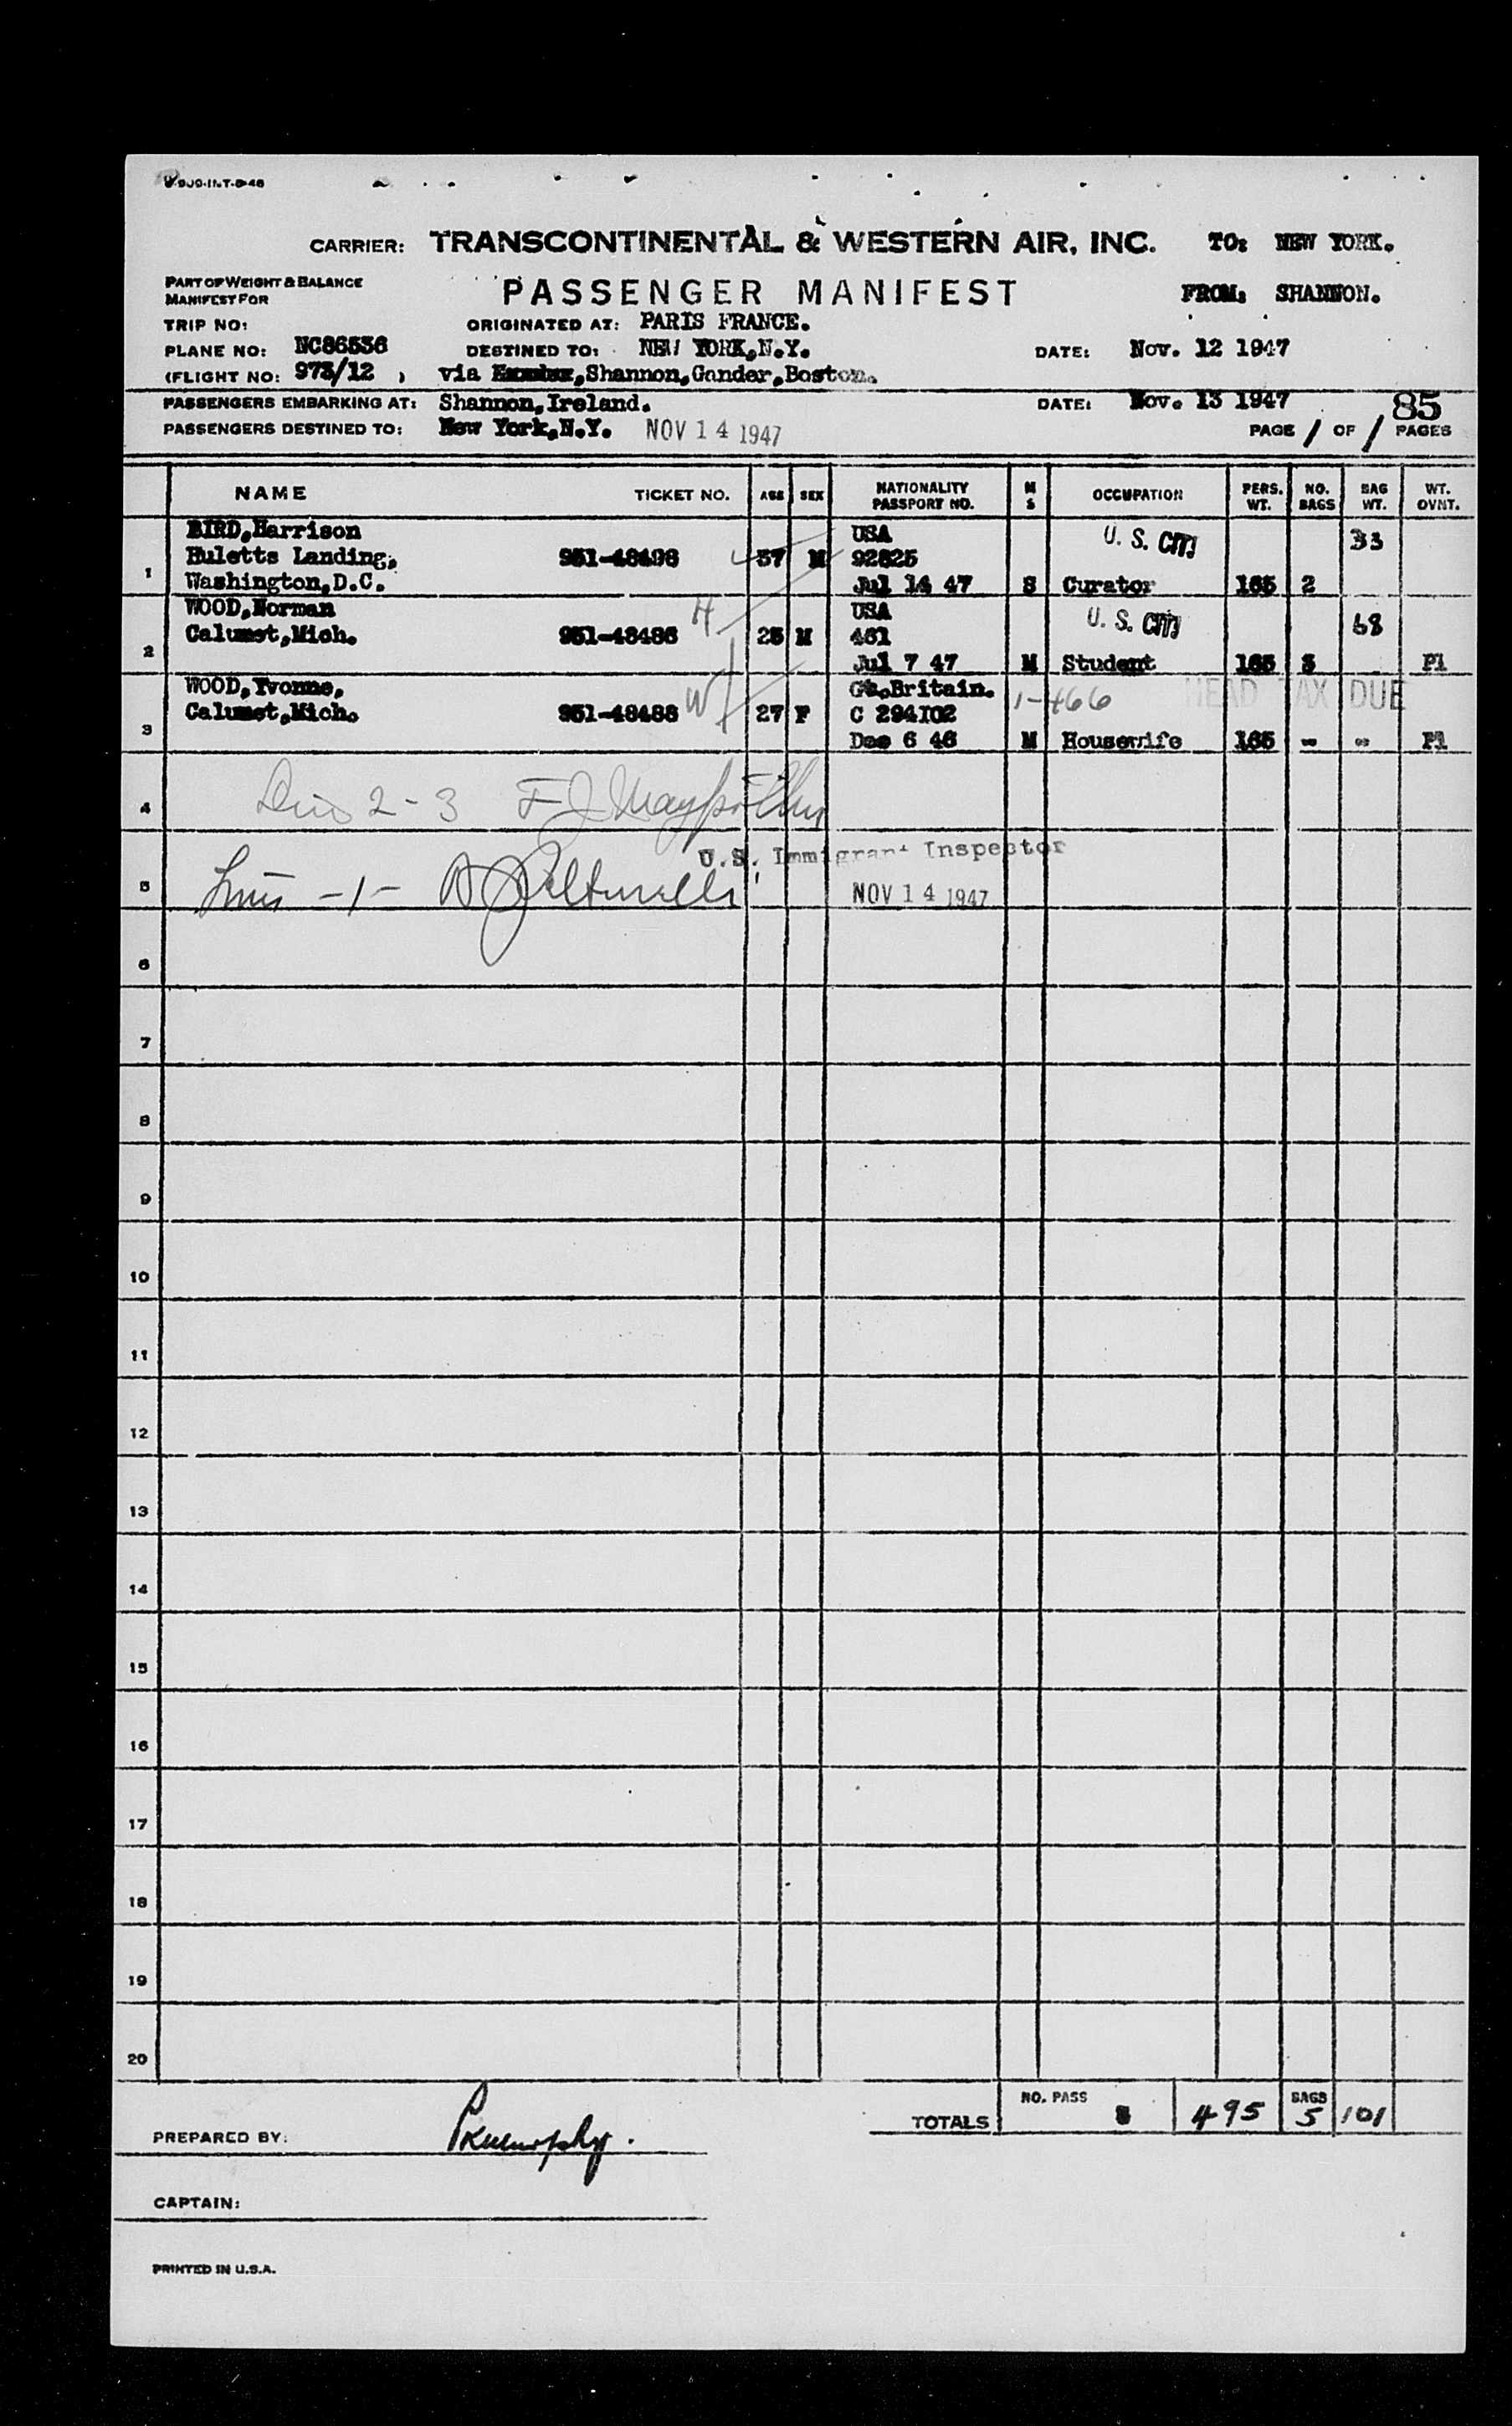 CARRIER: TRANSCONTINENTAL & WESTERN AIR, INC. TO: NEW YORK.
PART OF WEIGHT & BALANCE
MANIFEST FOR
PASSENGER MANIFEST FROM: SHANNON.
TRIP NO: ORIGINATED AT: PARIS FRANCE.
PLANE NO: NC86536 DESTINED TO: NEW YORK,N.Y. DATE: Nov. 12 1947
(FLIGHT NO: 973/12 ) via ,Shannon,Gander,Boston.
PASSENGERS EMBARKING AT: Shannon,Ireland. DATE: Nov. 13 1947 85
PASSENGERS DESTINED TO: New York,N.Y. NOV 14 1947 PAGE 1 OF 1 PAGES
NAME TICKET NO. AGE SEX NATIONALITY PASSPORT NO. M S OCCUPATION PERS. WT. NO. BAGS BAG WT. WT. OVNT.
BIRD,Harrison USA U. S. CIT. 33
Huletts Landing, 951-48498 37 M 92825
1 Washington,D.C. Jul 14 47 S Curator 165 2
WOOD,Norman H USA U. S. CIT. 68
Calumet,Mich. 951-48486 25 M 461
2 Jul 7 47 M Student 165 3 P1
WOOD,Yvonne, Gt.Britain. 1-466 HEAD TAX DUE
Calumet,Mich. 951-48488 W 27 F C 294102
3 Dec 6 46 M Housewife 165 - - P1
4 2-3
U.S. Immigrant Inspector
5 -1- NOV 14 1947
6
7
8
9
10
11
12
13
14
15
16
17
18
19
20
TOTALS NO. PASS 3 495 BAGS 5 101
PREPARED BY:
CAPTAIN:
PRINTED IN U.S.A.